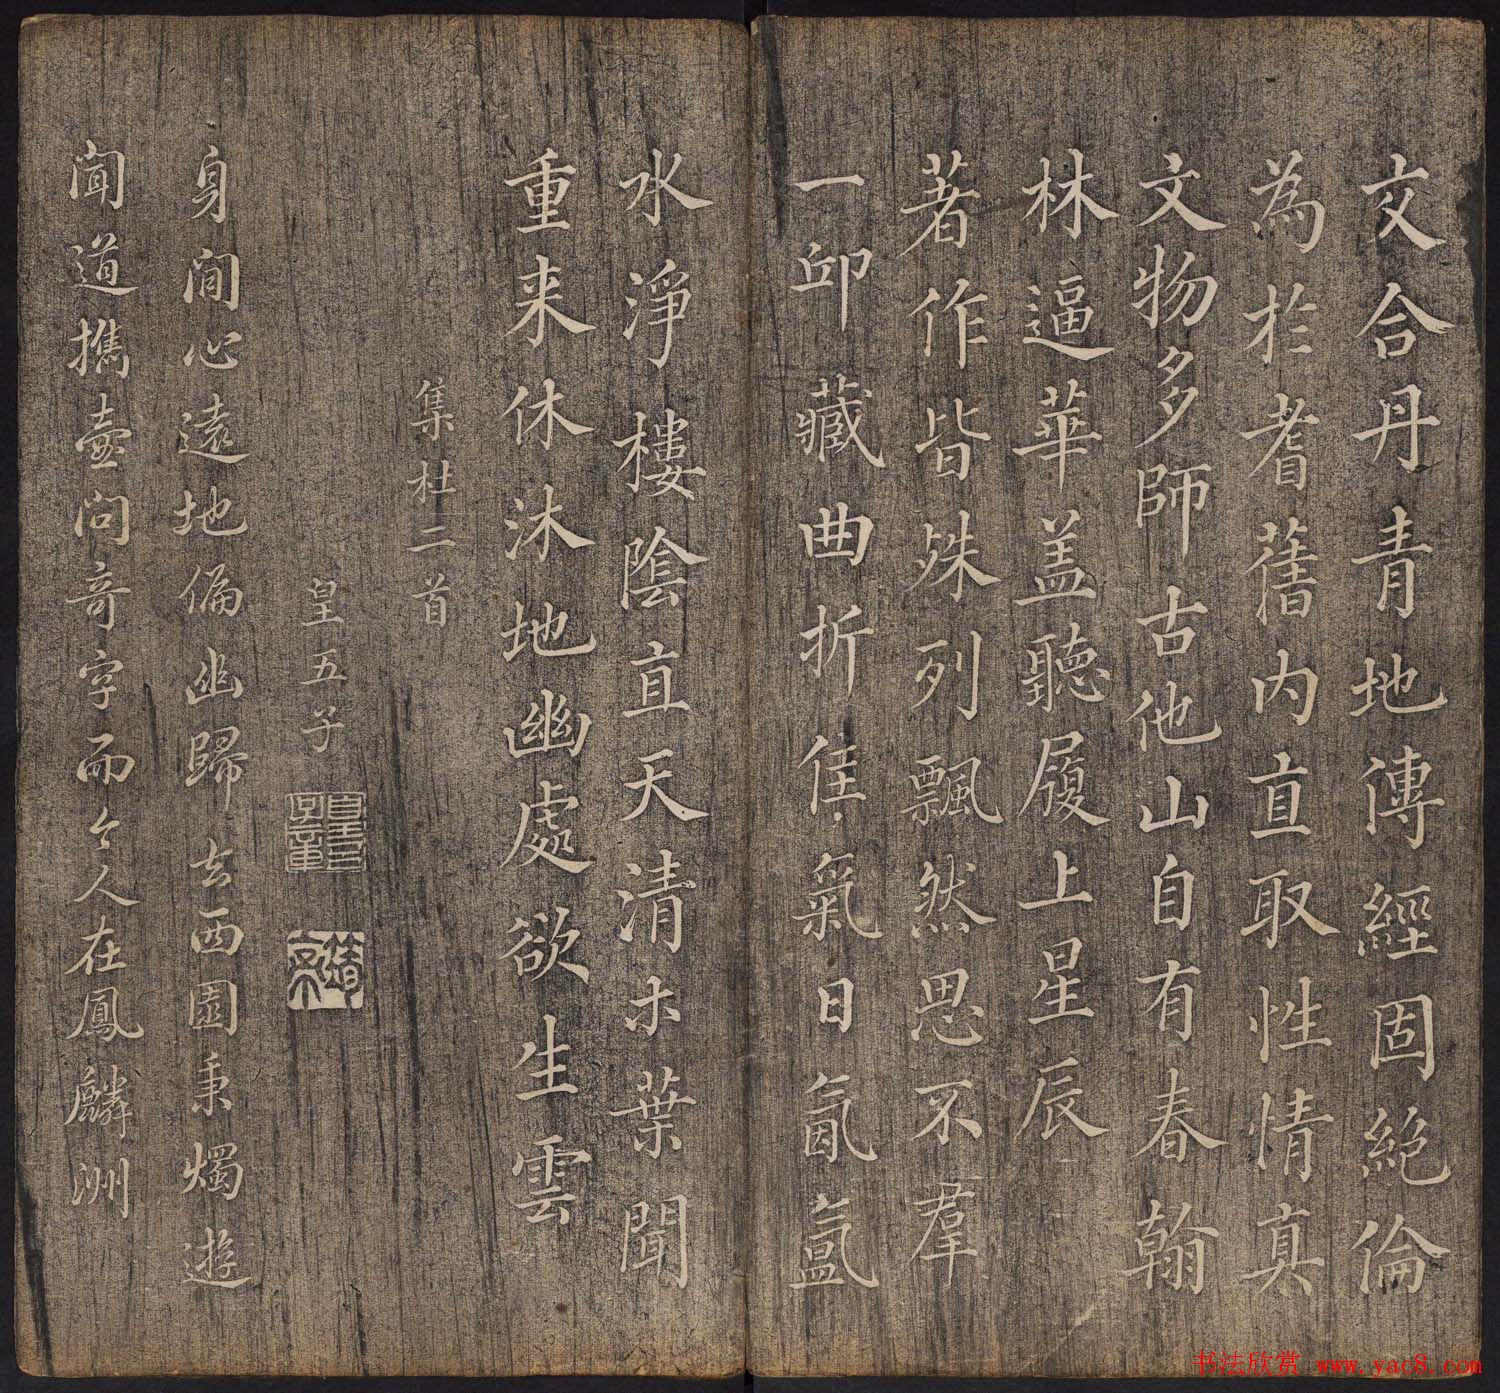 文合丹青地傳經固絶倫
為於耆舊内直取性情真
文物多師古他山自有春翰
林逼華盖聽履上星辰
著作皆殊列飄然思不羣
一邱藏曲折佳氣日氤氲
水淨樓陰直天清木葉聞
重来休沐地幽處欲生雲
集杜二首
皇五子
皇五子章
身閒心遠地偏幽歸去西園秉燭遊
聞道攜壷問奇字而今人在鳳麟洲
书法欣赏 www.yac8.com